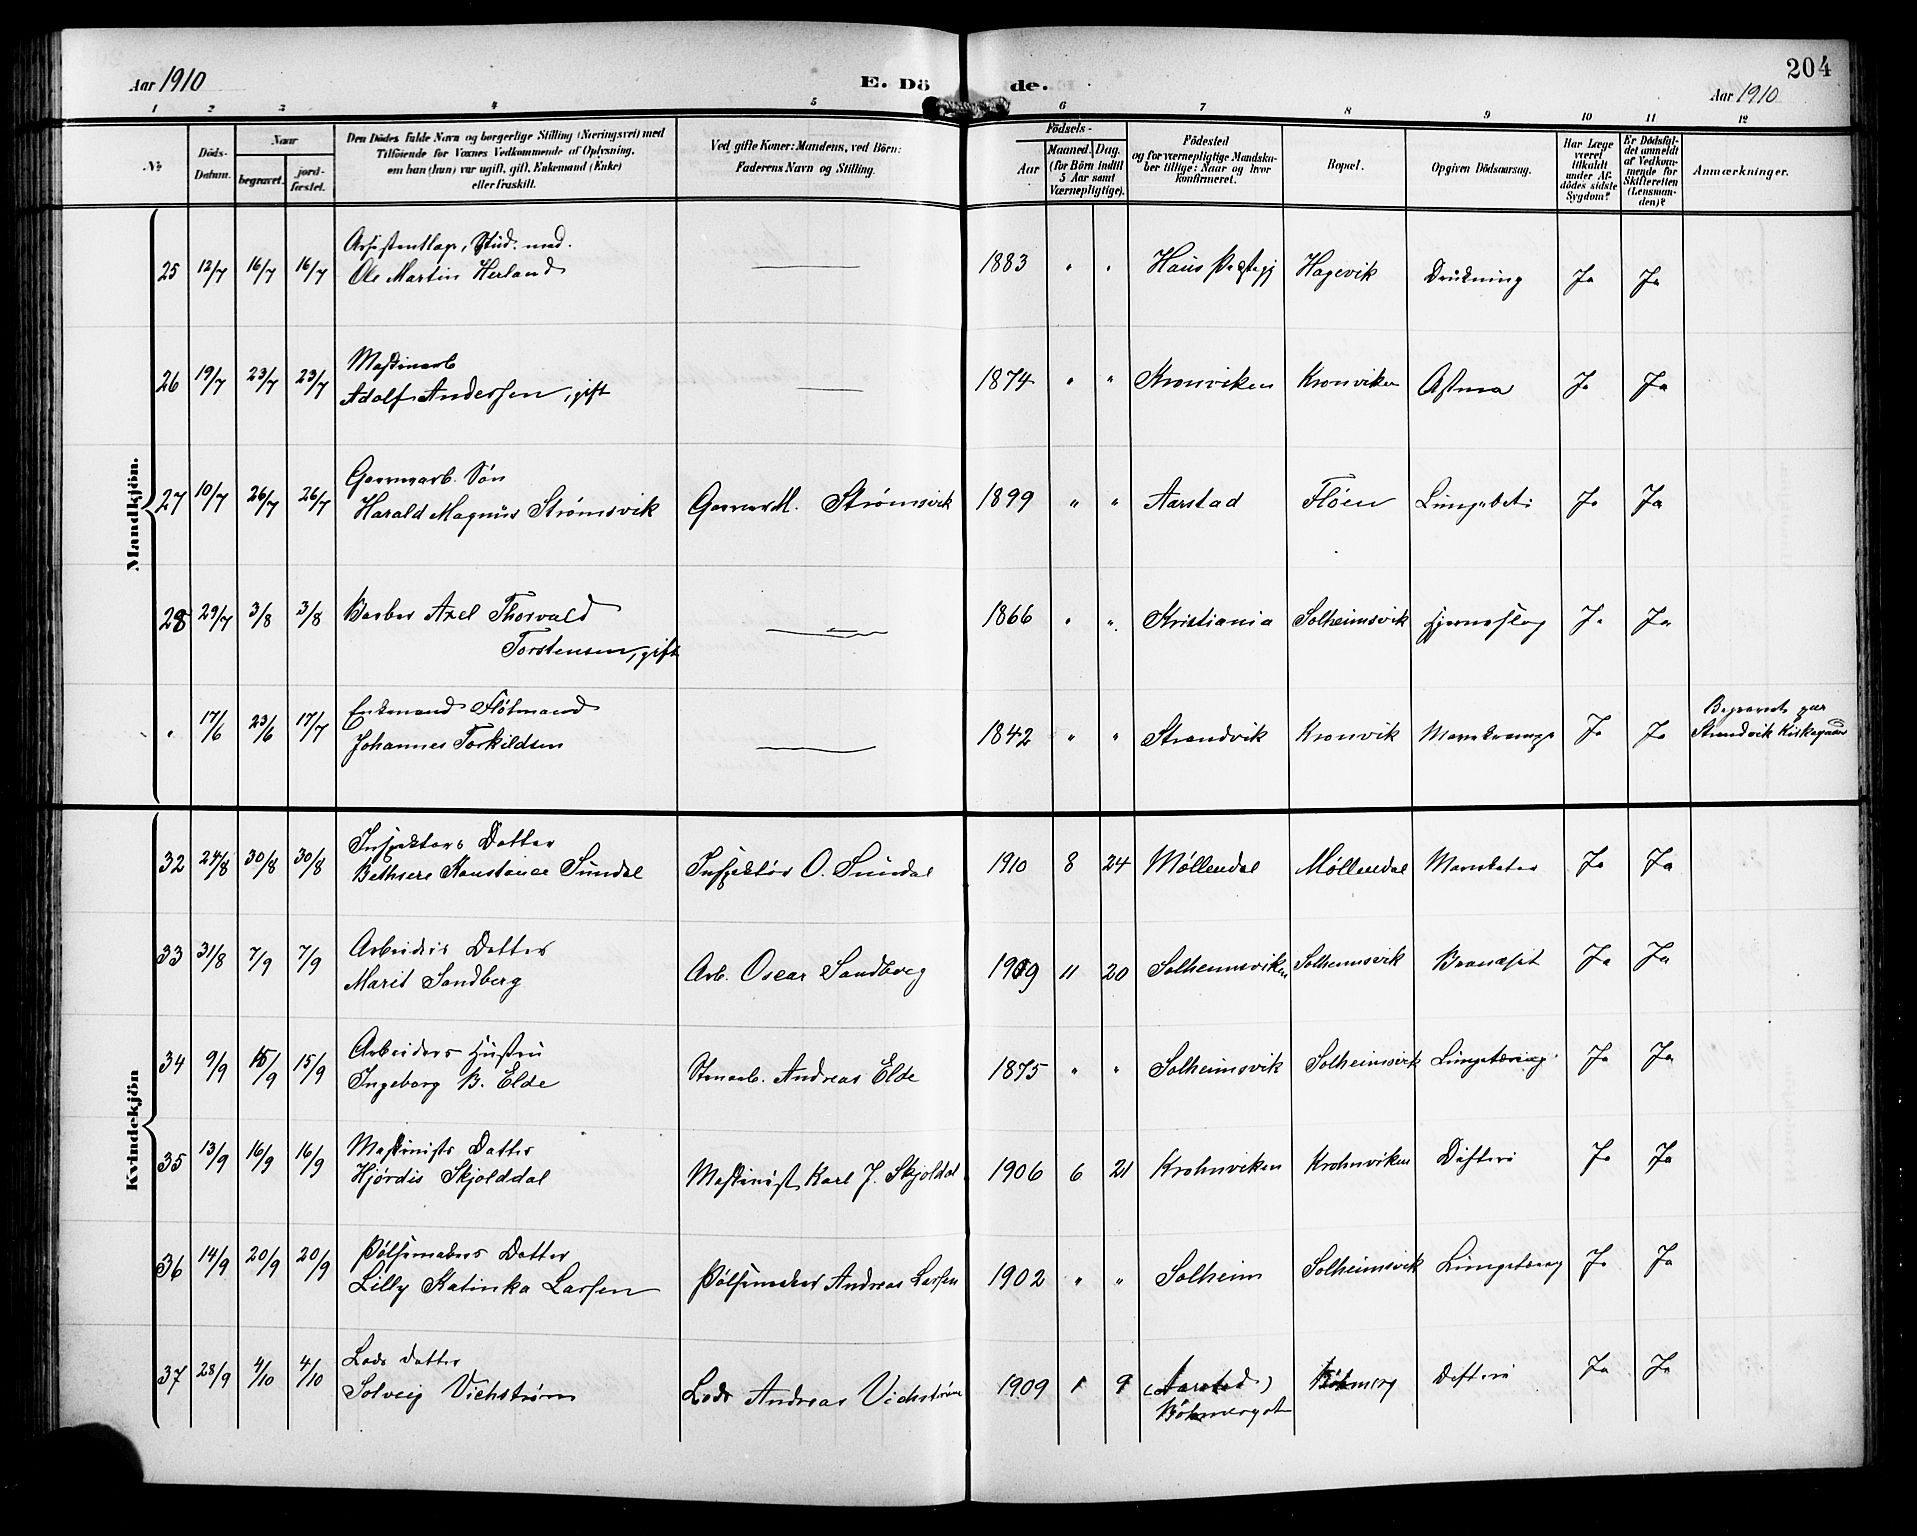 204
Aar 1910
E. Dö de.
Aar 1910
1 2 3 4 5 6 7 8 9 10 11 12
№
Döds-Datum.
Naar
begravet.
jord-fæstet.
Den Dödes fulde Navn og borgerlige Stilling (Næringsvei) med
Tilföiende for Voxnes Vedkommende af Oplysning,
om han (hun) var ugift, gift, Enkemand (Enke)
eller fraskilt.
Ved gifte Koner: Mandens, ved Börn:
Faderens Navn og Stilling.
Födsels-
Aar
Maaned. Dag.
(for Börn indtil
5 Aar samt
Værnepligtige).
Födested
og for værnepligtige Mandska-
ber tillige: Naar og hvor
konfirmeret.
Bopæl.
Opgiven Dödsaarsag.
Har Læge
været
tilkaldt
under Af-
dödes sidste
Sygdom?
Er Dödsfal-
det anmeldt
af Vedkom-
mende for
Skifteretten
(Lensman-
den)?
Anmærkninger.
Mandkjön.
Stud. med.
25 12/7 16/7 16/7 Ole Martin Herland 1883 " " Haus Hagevik Drukning Ja Ja
26 19/7 23/7 23/7 Adolf Andersen, gift 1874 " " Kronviken Kronviken Astma Ja Ja
Søn
27 10/7 26/7 26/7 Harald Magnus Strømsvik Strømsvik 1899 " " Aarstad Fløen Ja Ja
28 29/7 3/8 3/8 Barber Axel Thorvald 1866 " " Kristiania Solheimsvik Hjerneslag Ja Ja
Torstensen, gift
" 17/6 23/6 17/7 Enkemand Flötmand 1842 " " Strandvik Kronvik Ja Ja Begravet paa
Johannes Torkildsen Strandvik Kirkegaard
Kvindekjön
Inspektörs Datter
32 24/8 30/8 30/8 Konstance Sundal Inspektör O. Sundal 1910 8 24 Møllendal Møllendal Ja Ja
Arbeiders Datter
33 31/8 7/9 7/9 Marit Sandberg Arb. Oscar Sandberg 1909 11 20 Solheimsviken Solheimsvik Ja Ja
Arbeiders Hustru
34 9/9 15/9 15/9 Ingeborg B. Elde Stenarb. Andreas Elde 1875 " " Solheimsvik Solheimsvik Lungetæring Ja Ja
Maskinists Datter
35 13/9 16/9 16/9 Hjørdis Skjolddal Maskinist Karl J. Skjolddal 1906 6 21 Krohnviken Krohnviken Difteri Ja Ja
Pølsemakers Datter
36 14/9 20/9 20/9 Lilly Katinka Larsen Pølsemaker Andreas Larsen 1902 " " Solheim Solheimsvik Lungetæring Ja Ja
Lods datter
37 28/9 4/10 4/10 Solveig Vichstrøm Lods Andreas Vichstrøm 1909 1 9 (Aarstad) Difteri Ja Ja